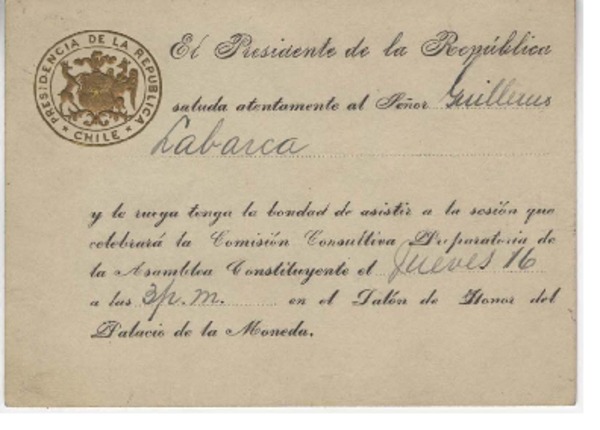 PRESIDENCIA DE LA REPUBLICA
CHILE
El Presidente de la República
saluda atentamente al Señor Guillermo
Labarca
y le ruega tenga la bondad de asistir a la sesión que
celebrará la Comisión Consultiva Preparatoria de
la Asamblea Constituyente el Jueves 16
a las 3 p.m. en el Salón de Honor del
Palacio de la Moneda.